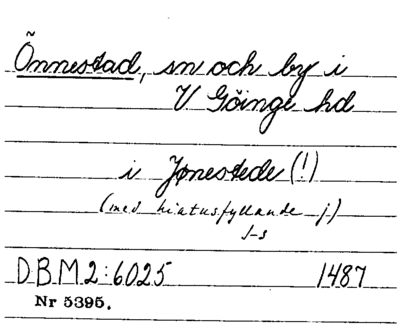 Õnnestad, sn och by i
V Göinge hd
i Jønestede (!)
(med hiatusfyllande j)
J-s
DBM2:6025 1487
Nr 5395.